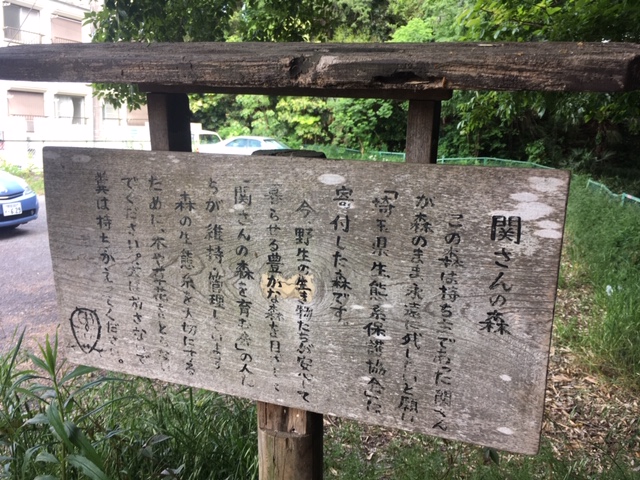 関さんの森
この森は持ち主であった関さん
が森のまま永遠に残したいと願い
「埼玉県生態系保護協会」に
寄付した森です。
今、野生の生き物たちが安心して
暮らせる豊かな森を目ざし
「関さんの森を育む会」の人た
ちが維持、管理しています
森の生態系を大切にする
ために、木や草花をとらない
でください。火は、
糞は持ちかえってください。